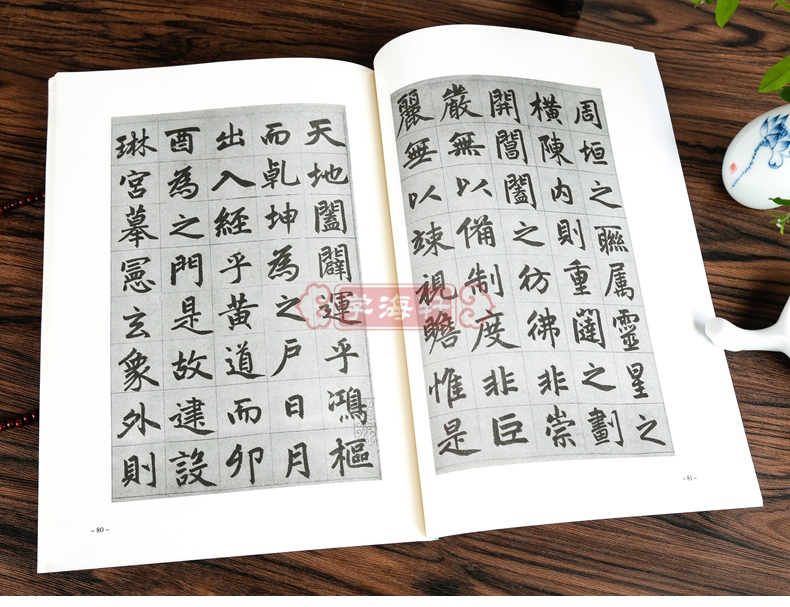 天地闔闢運乎鴻樞
而乹坤為之戶日月
出入經乎黃道而卯
酉為之門是故建設
琳宮摹憲玄象外則
-80-
周垣之聯属靈星之
横陳内則重闥之劃
開閶闔之彷彿非崇
嚴無以備制度非巨
麗無以竦視瞻惟是
-81-
字海轩